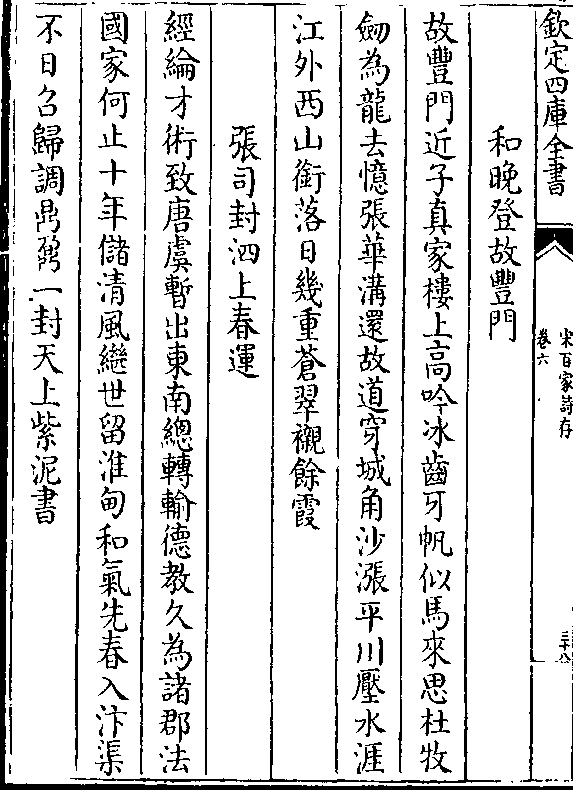 欽定四庫全書
宋百家詩存
卷六
三十八
和晚登故豐門
故豐門近子真家樓上高吟冰齒牙帆似馬來思杜牧
劒為龍去憶張華溝還故道穿城角沙漲平川壓水涯
江外西山銜落日幾重蒼翠襯餘霞
張司封泗上春運
經綸才術致唐虞暫出東南總轉輸德教久為諸郡法
國家何止十年儲清風繼世留淮甸和氣先春入汴渠
不日召歸調鼎鼐一封天上紫泥書